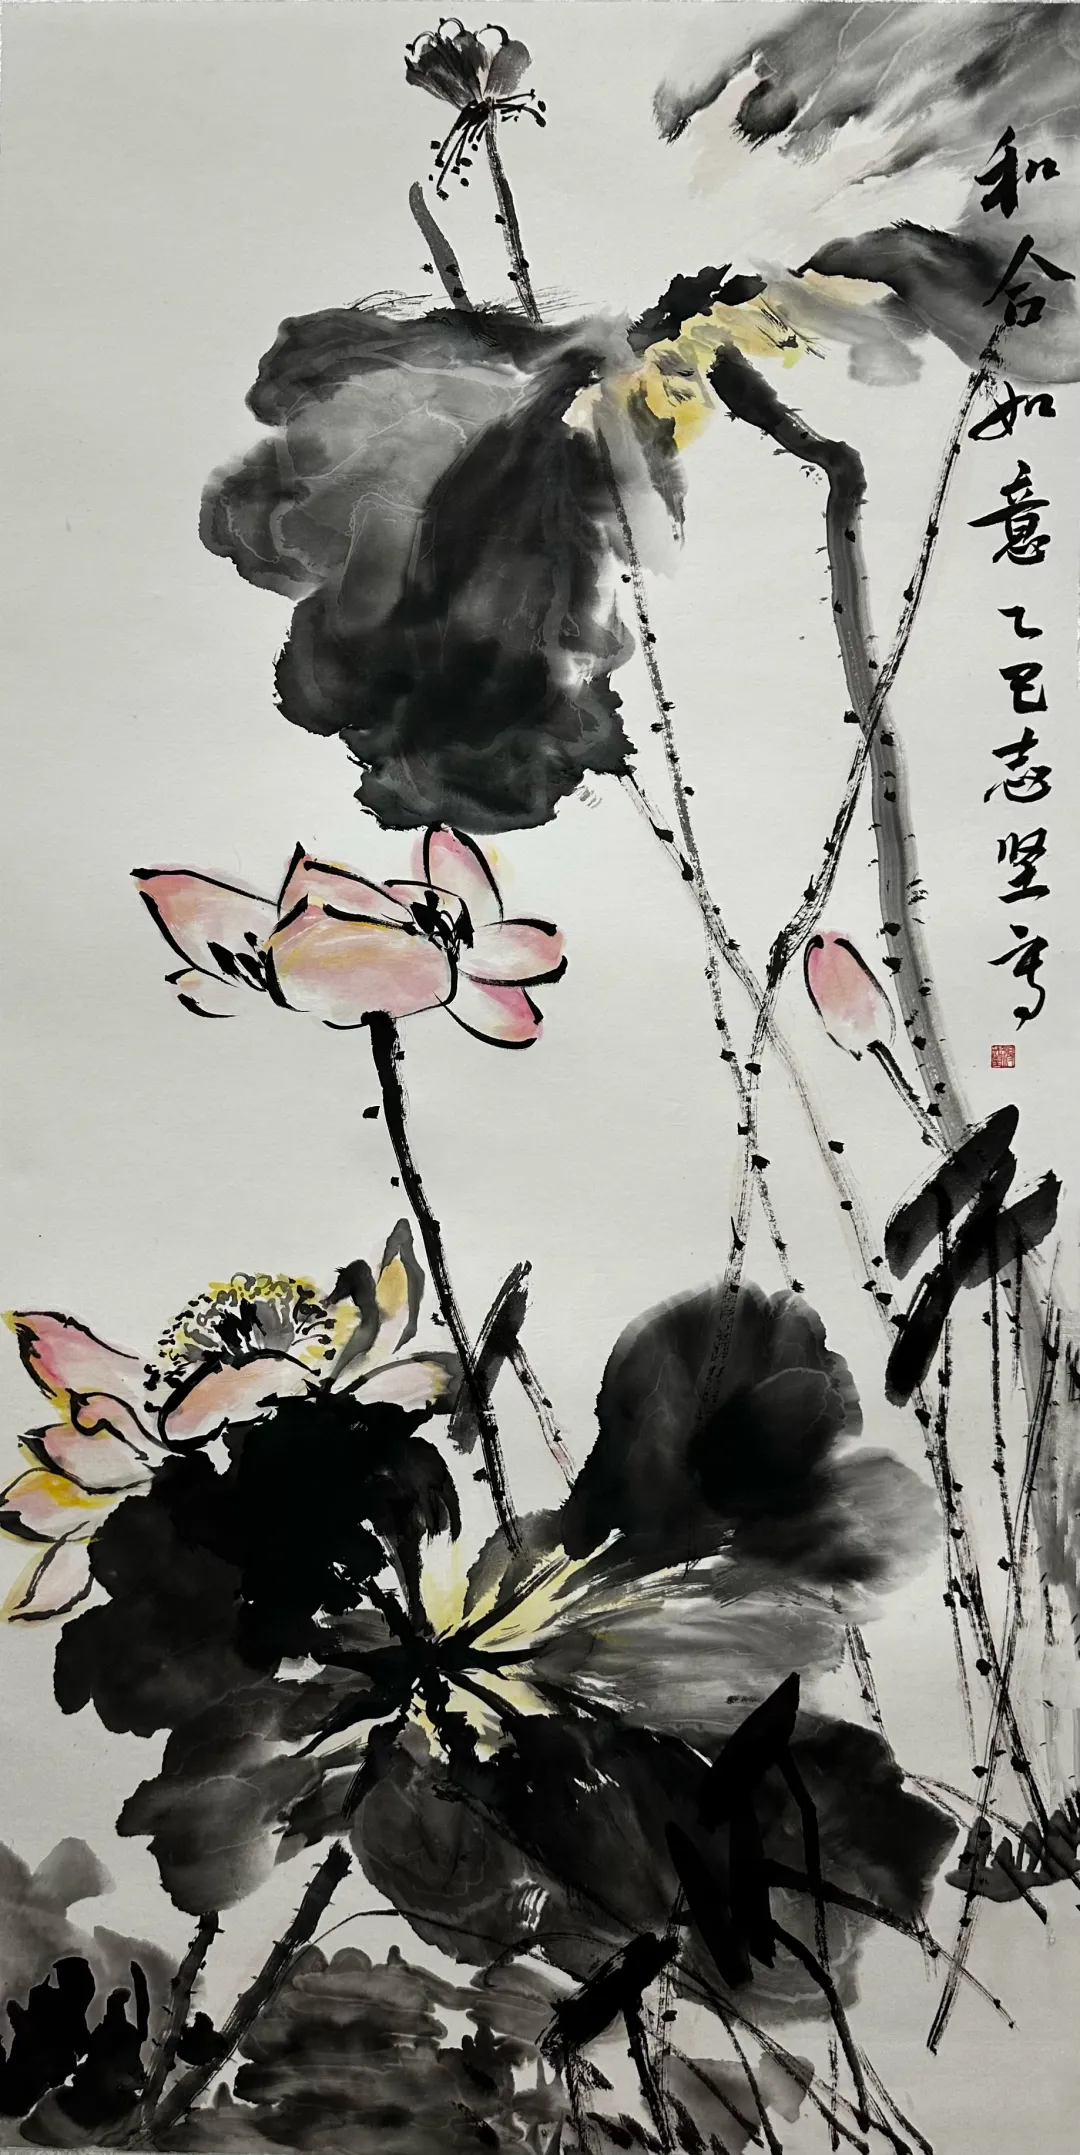 和合如意乙巳志坚写